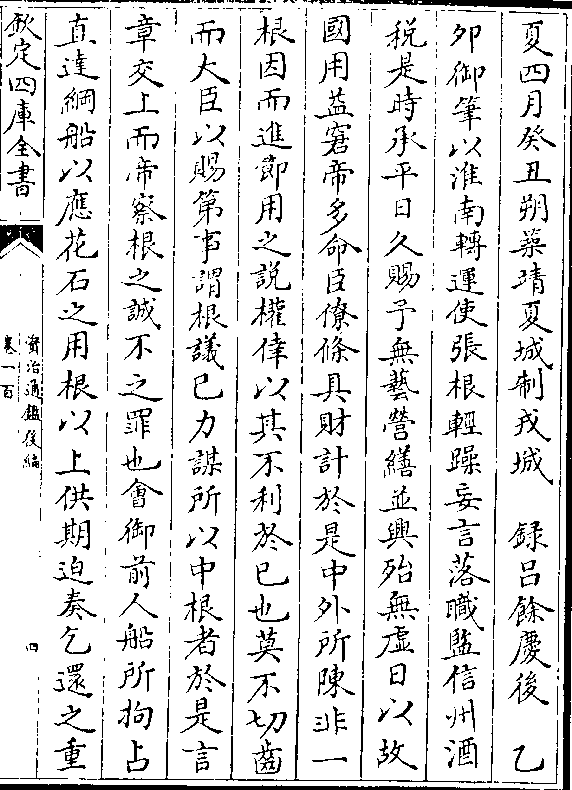 夏四月癸丑朔築靖夏城制戎城　録吕餘慶後　乙
夘御筆以淮南轉運使張根輕躁妄言落職監信州酒
税是時承平日久賜予無藝營繕並興殆無虚日以故
國用益窘帝多命臣僚條具財計於是中外所陳非一
根因而進節用之説權倖以其不利於已也莫不切齒
而大臣以賜第事謂根議已力謀所以中根者於是言
章交上而帝察根之誠不之罪也會御前人船所拘占
直達綱船以應花石之用根以上供期迫奏乞還之重
欽定四庫全書
資治通鑑後編
卷一百
四